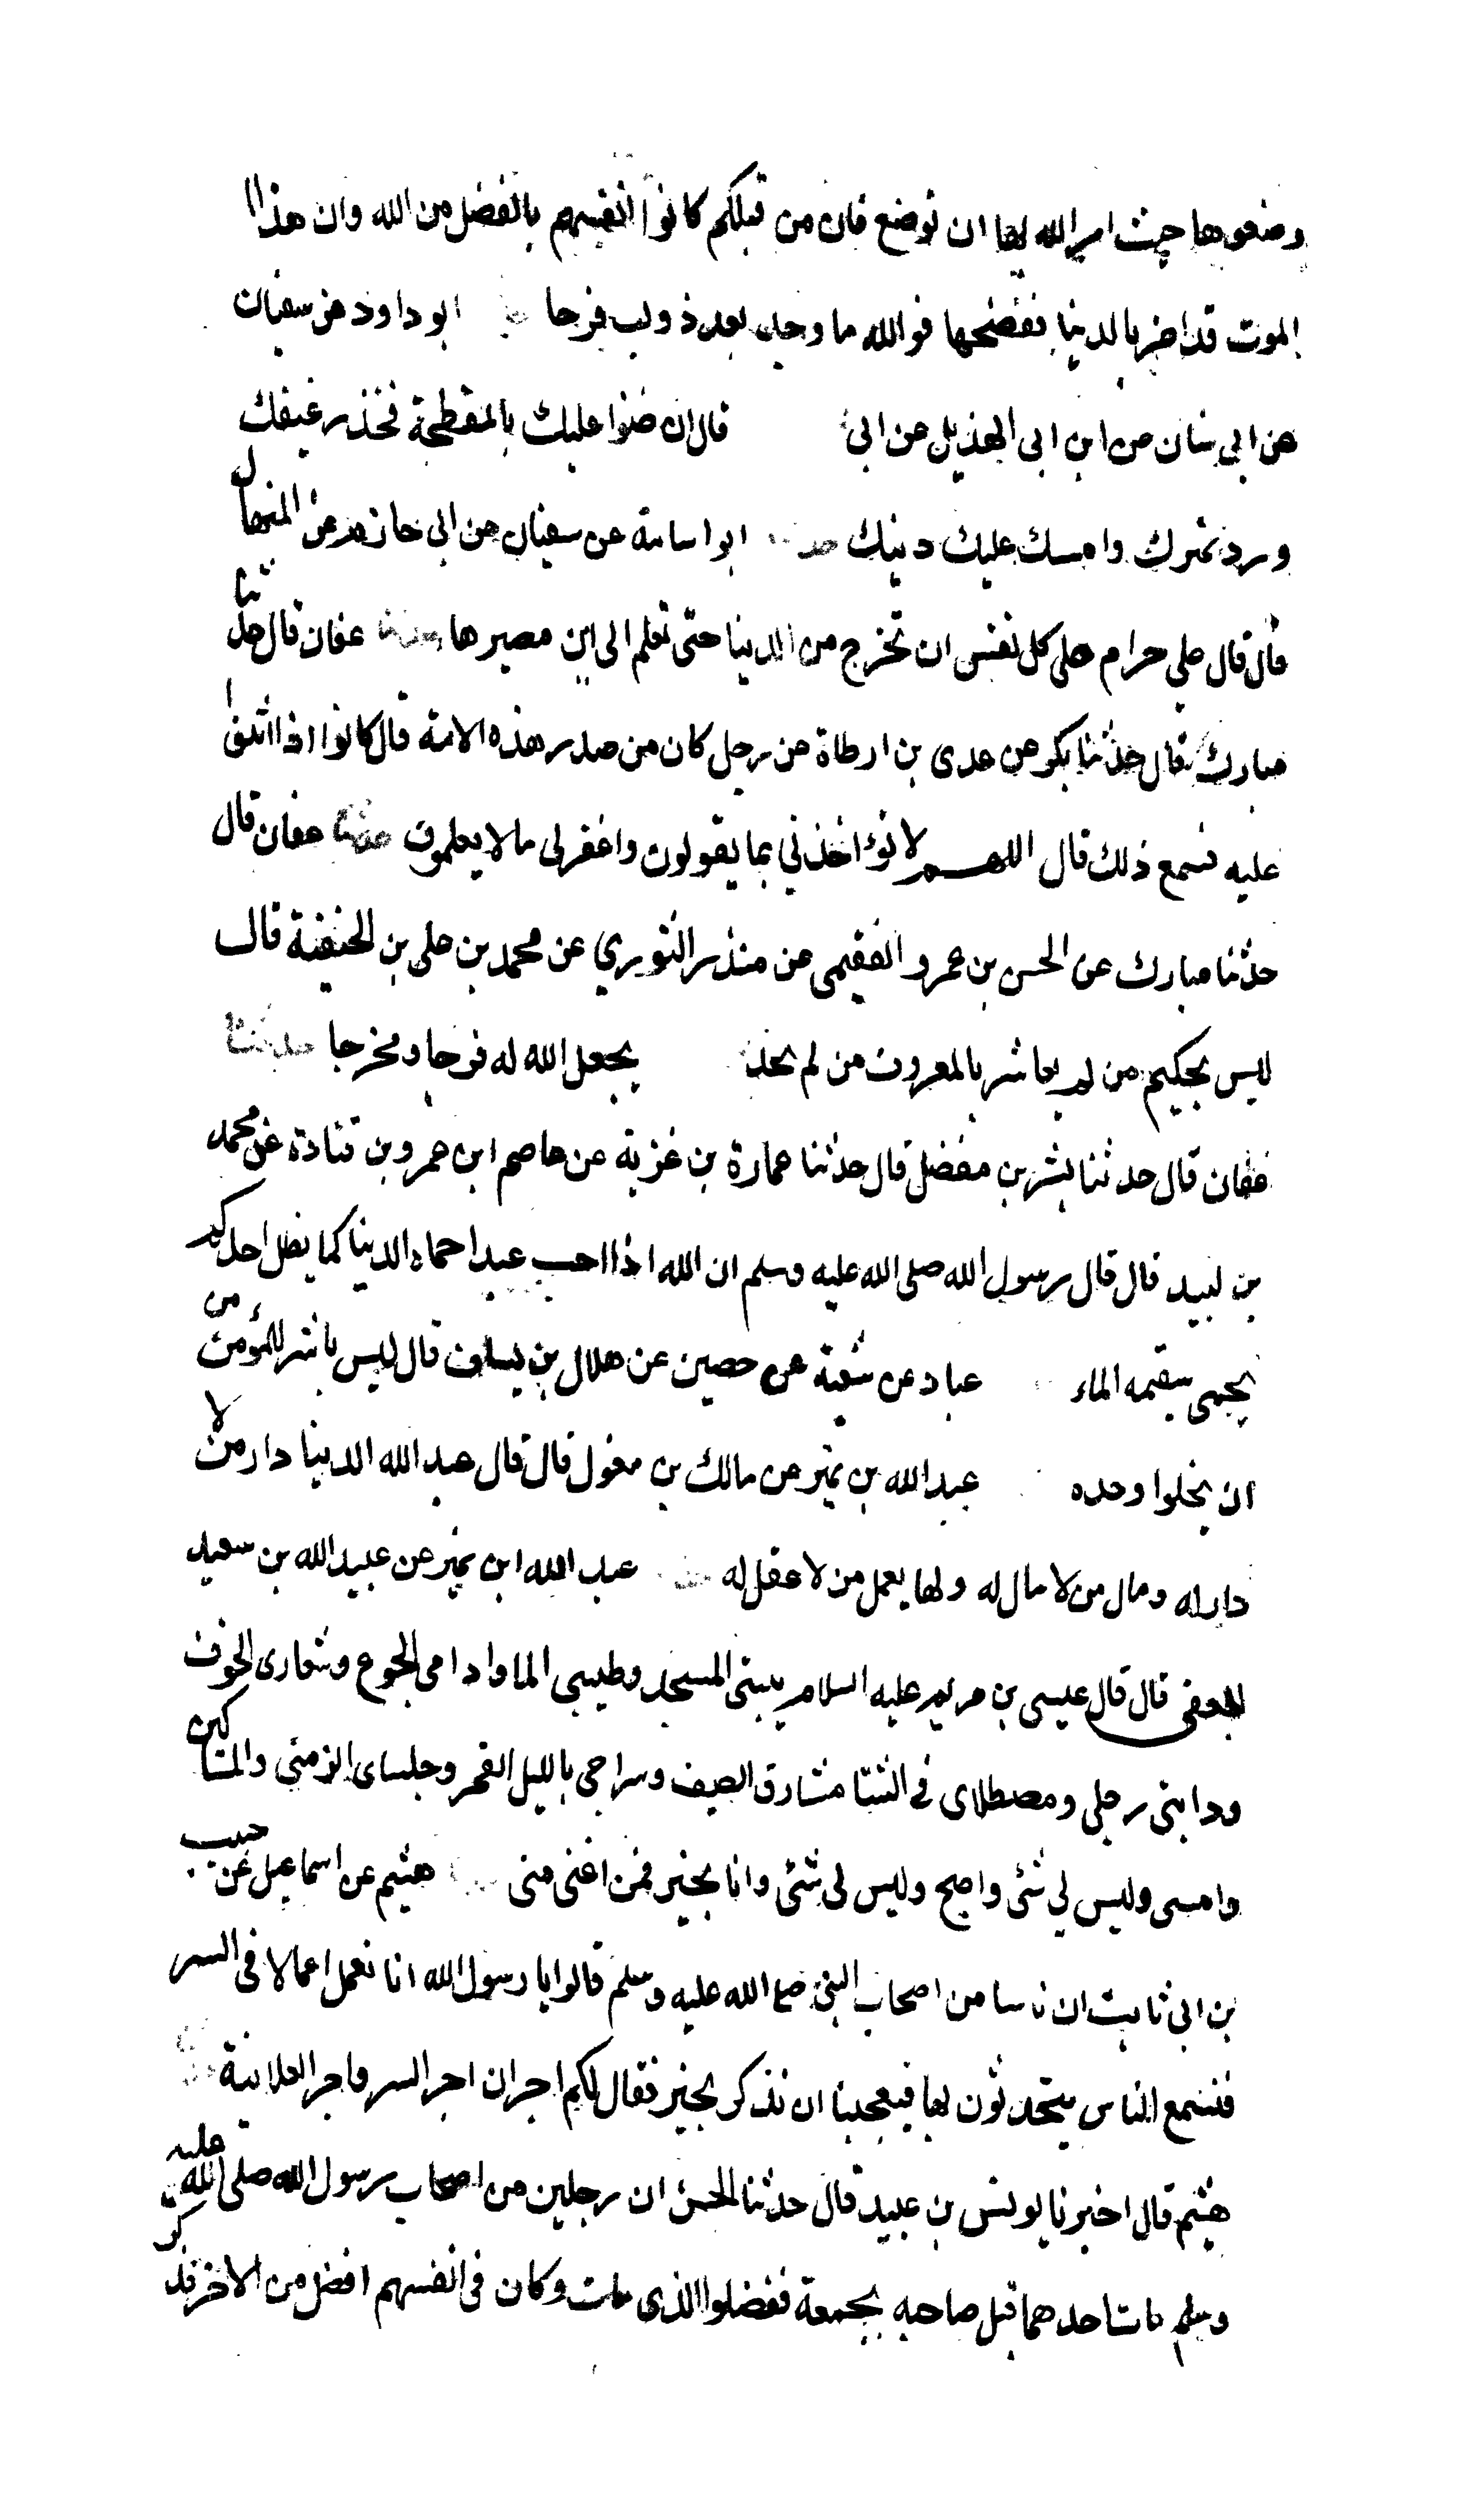 وضعوها حيث امر الله بها ان توضع فان من قبلكم كانوا انفسهم بالفضل من الله وان هذا
الموت قد اضر بالدنيا ففضحها فوالله ما وجد بعد ذو لب فرحا ابو داود عن سفيان
عن ابي سنان عن ابن ابى الهذيل عن ابى قال ان ضنوا عليك بالمفطحة فخذ رغيفك
ورد نهرك وامسك عليك دينك حدثنا ابو اسامة عن سفيان عن ابى حازم عن المنهال
قال قال علي حرام على كل نفس ان تخرج من الدنيا حتى تعلم الى اين مصيرها حدثنا عفان قال حدثنا
مبارك قال حدثنا بكر عن عدى بن ارطاة عن رجل كان من صدر هذه الامة قال كانوا اذا اثنوا
عليه فسمع ذلك قال اللهم لا تؤاخذني بما يقولون واغفر لى ما لا يعلمون حدثنا عفان قال
حدثنا مبارك عن الحسن بن عمرو الفقيمى عن منذر الثوري عن محمد بن على بن الحنفية قال
ليس بحكيم من لم يعاشر بالمعروف من لم يجد يجعل الله له فرجا ومخرجا حدثنا
عفان قال حدثنا بشر بن مفضل قال حدثنا عمارة بن غزية عن عاصم ابن عمرو بن قتادة عن محمد
بن لبيد قال قال رسول الله صلى الله عليه وسلم ان الله اذا احب عبدا حماه الدنيا كما يظل احدكم
يحمى سقيمه الماء عباد عن شعبة عن حصين عن هلال بن يساف قال ليس باشر للمؤمن من
ان يخلوا وحده عبد الله بن نمير عن مالك بن مغول قال قال عبد الله الدنيا دار من لا
دار له ومال من لا مال له ولها يعمل من لا عقل له عبد الله ابن نمير عن عبيد الله بن سعيد
الجعفى قال قال عيسى بن مريم عليه السلام بيتى المسجد وطيبى الما وادامى الجوع وشعارى الخوف
ودابتى رجلى ومصطلاى في الشتا مشارق الصيف وسراجى بالليل القمر وجلساى الزمنى والمساكين
وامسى وليس لي شئ واصبح وليس لى شئ وانا بخير فمن اغنى منى هشيم عن اسماعيل عن حبيب
بن ابى ثابت ان ناسا من اصحاب النبى صلى الله عليه وسلم قالوا يا رسول الله انا نعمل اعمالا فى السر
فنسمع الناس يتحدثون بها فيعجبنا ان نذكر بخير فقال لكم اجران اجر السر واجر العلانية
هشيم قال اخبرنا يونس بن عبيد قال حدثنا الحسن ان رجلين من اصحاب رسول الله صلى الله عليه
وسلم مات احدهما قبل صاحبه بجمعة ففضلوا الذى مات وكان فى انفسهم افضل من الاخر فذكر